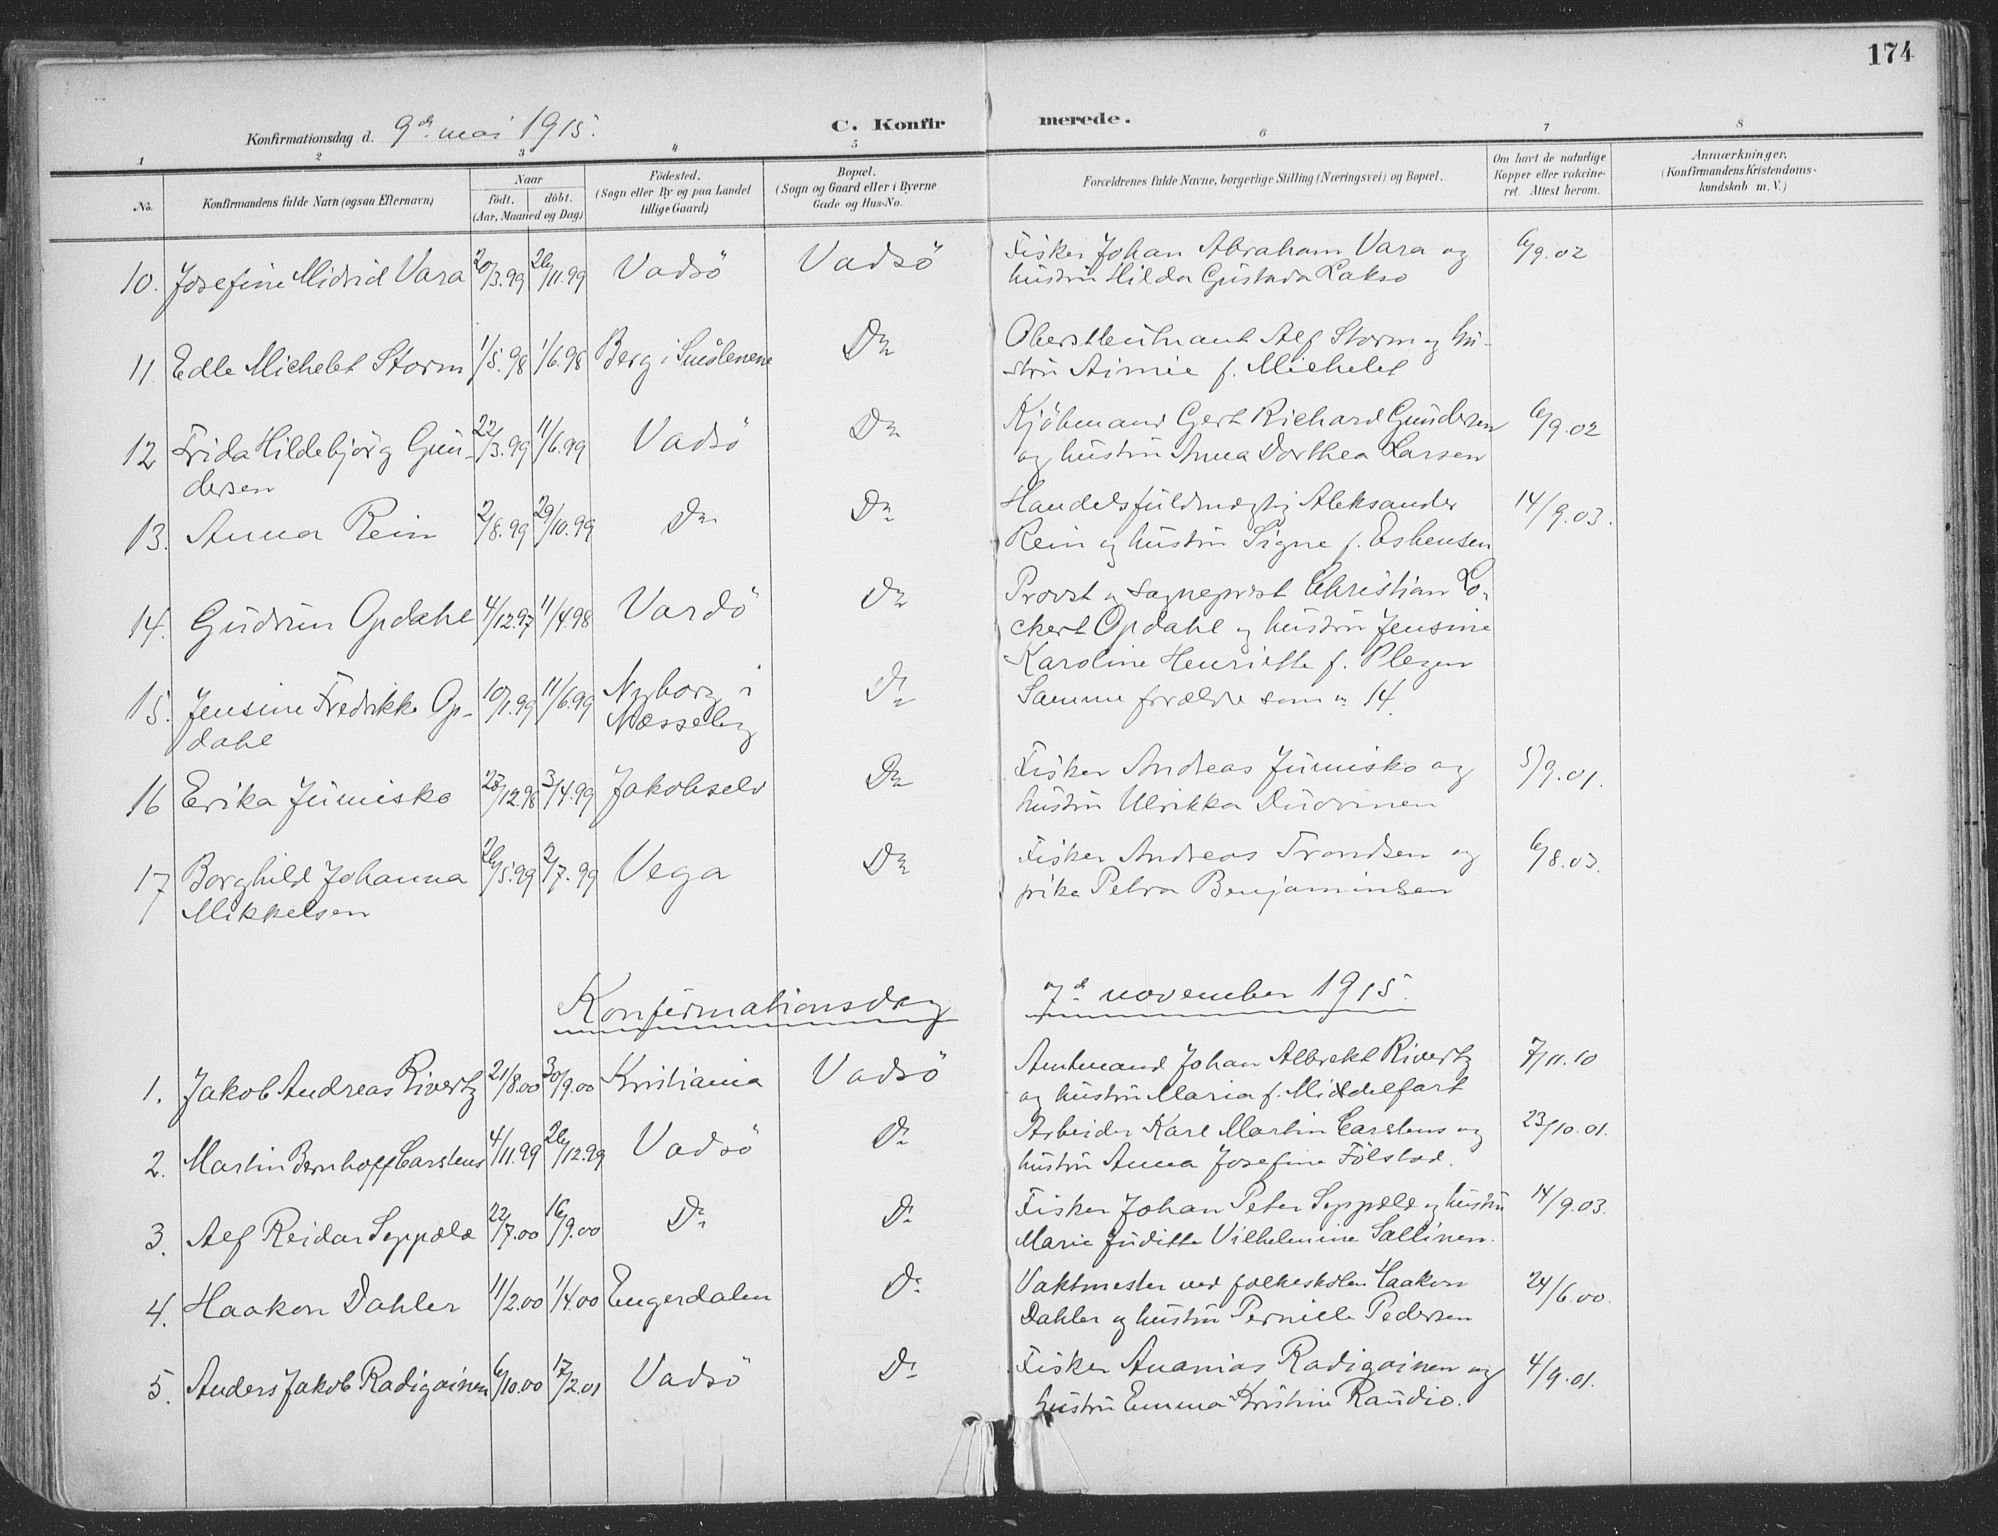 174
Konfirmationsdag d. 9de mai 1915.
C. Konfirmerede.
1 2 3 4 5 6 7 8
No.
Konfirmandens fulde Navn (ogsaa Efternavn)
Naar
født. døbt.
(Aar, Maaned og Dag)
Fødested.
(Sogn eller By og paa Landet
tillige Gaard)
Bopæl.
(Sogn og Gaard eller i Byerne
Gade og Hus-No.
Forældrenes fulde Navne, borgerlige Stilling (Næringsvei) og Bopæl.
Om havt de naturlige
Kopper eller vakcine-
ret. Attest herom.
Anmærkninger.
(Konfirmandens Kristendoms-
kundskab m. V.)
10. Josefine Midrid Vara 20/3.99 26/11.99 Vadsö Vadsö Fisker Johan Abraham Vara og 6/9.02
hustru Hilda Gustada Lakso
11. Edle Michelet Storm 1/5.98 1/6.98 Berg i Smålenene Do Oberstleutnant Alf Storm og hu-
stru Aimée f. Michelet
12 Frida Hildebjörg Gun- 22/3.99 11/6.99 Vadsö Do Kjöbmand Gert Richard Gundersen 6/9.02
dersen og hustru Anna Dorthea Larsen
13. Anna Rein 2/8.99 29/10.99 Do Do Handelsfuldmægtig Aleksander 14/9.03.
Rein og hustru Signe f. Esbensen
14. Gudrun Opdahl 4/12.97 11/4.98 Vardö Do Provst og sogneprest Christian Lo-
ckert Opdahl og hustru Jensine
Karoline Henriette f. Plezen
15. Jensine Fredrikke Op- 10/1.99 11/6.99 Nyborg i Do Samme forældre som no 14.
dahl Næsseby
16 Erika Jumisko 28/12.98 3/4.99 Jakobselv Do Fisker Andreas Jumisko og 5/9.01.
hustru Ulrikka Duovinen
17 Borghild Johanna 26/5.99 2/7.99 Vega Do Fisker Andreas Trondsen og 6/8.03.
Mikkelsen pike Petra Benjaminsen
Konfirmationsdag 7d november 1915.
1. Jakob Andreas Rivertz 21/8.00 30/9.00 Kristiania Vadsö Amtmand Johan Albrekt Rivertz 7/11.10
og hustru Maria f. Middelfart
2. Martin Bernhoff Carstens 4/11.99 26/12.99 Vadsö Do Arbeider Karl Martin Carstens og 23/10.01.
hustru Anna Josefine Fölstad.
3. Alf Reidar Seppælæ 22/7.00 16/9.00 Do Do Fisker Johan Peter Seppælæ og hustru 14/9.03.
Marie Juditte Vilhelmine Sallinen.
4. Haakon Dahler 11/2.00 1/4.00 Engerdalen Do Vaktmester ved folkeskolen Haakon 24/6.00.
Dahler og hustru Pernille Pedersen
5. Anders Jakob Radigoinen 6/10.00 17/2.01 Vadsö Do Fisker Ananias Radigoinen og 4/9.01.
hustru Emma Kristine Raudio.